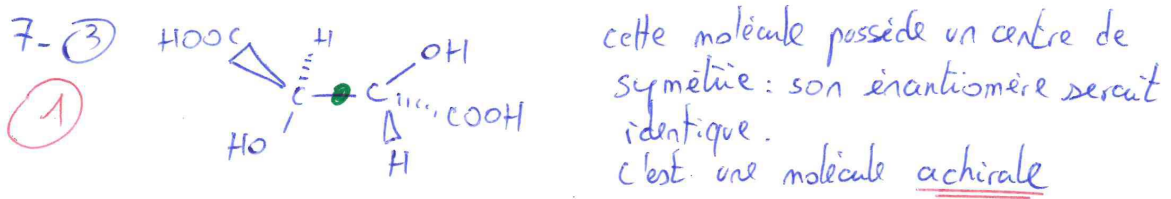 7- 3
1
HOOC H OH
C C COOH
HO H
cette molécule possède un centre de
symétrie : son énantiomère serait
identique.
c'est une molécule achirale